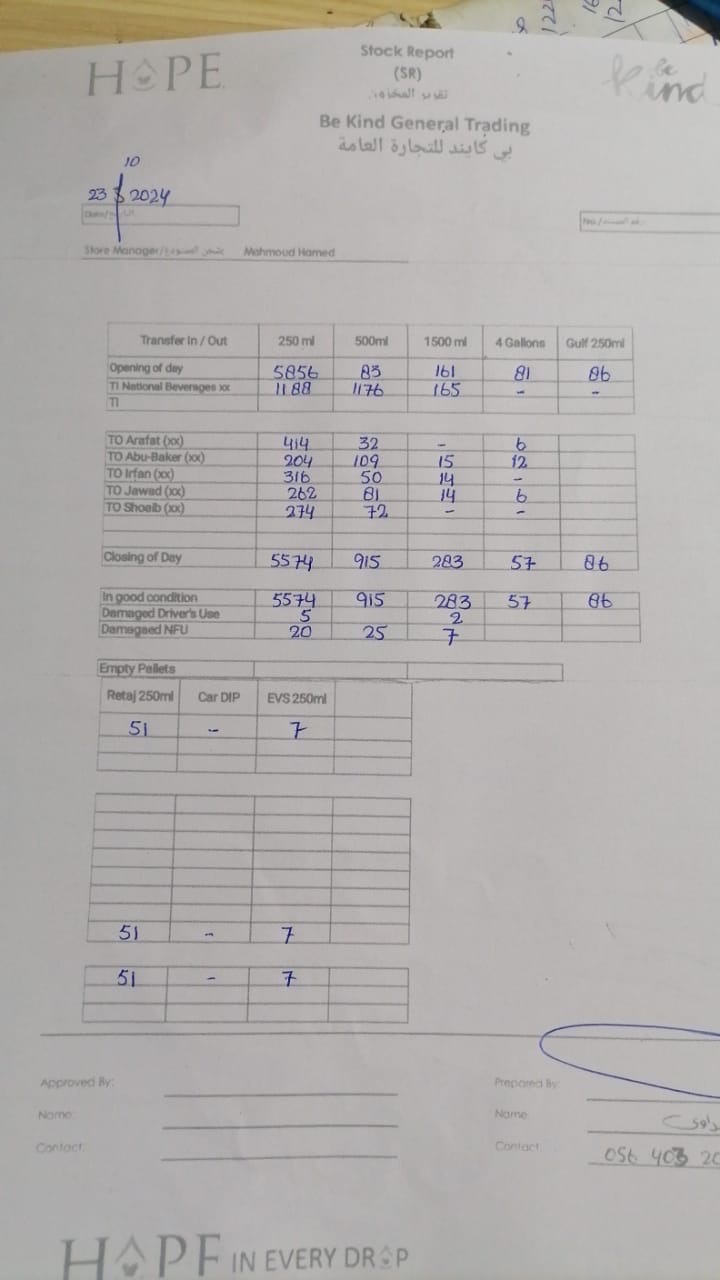 HOPE
Stock Report
(SR)
تقرير المخزون
be kind
Be Kind General Trading
بي كايند للتجارة العامة
10
23 2024
Date/
No./
Store Manager/ Mahmoud Hamed
Transfer In / Out 250 ml 500ml 1500 ml 4 Gallons Gulf 250ml
Opening of day 5856 83 161 81 86
TI National Beverages xx 1188 1176 165 - -
TI
TO Arafat (xx) 414 32 - 6
TO Abu-Baker (xx) 204 109 15 12
TO Irfan (xx) 316 50 14 -
TO Jawad (xx) 262 81 14 6
TO Shoaib (xx) 274 72 - -
Closing of Day 5574 915 283 57 86
In good condition 5574 915 283 57 86
Damaged Driver's Use 5 2
Damagaed NFU 20 25 7
Empty Pallets
Retaj 250ml Car DIP EVS 250ml
51 - 7
51 - 7
51 - 7
Approved By:
Name:
Contact:
Prepared By
Name
Contact 056 403 20
HOPE IN EVERY DROP